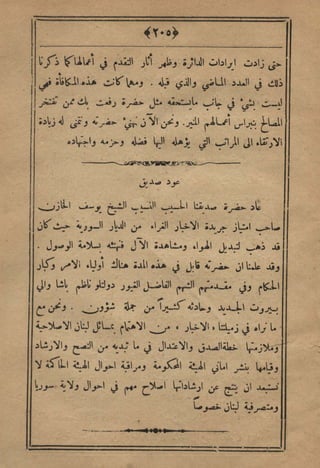 ﴿٢٠٥﴾
حتى زادت ايرادات الدائرة وظهر آثار التقدم في أعمالها كما ذكرنا
ذلك في العدد الماضي والذي قبله . ومهما كانت هذه المكافأة فهي
ليست بشيء في جانب ما يستحقه مثل حضرة رفعت بك ممن تفتخر
المصالح بنبراس أعمالهم المنير . ونحن الآن نهنئ حضرته ونتمنى له زيادة
الارتقاء الى المراتب التي يؤهله اليها فضله وحزمه واجتهاده
عود صديق
عاد حضرة صديقنا الحسيب النسيب الشيخ يوسف الخازن
صاحب امتياز جريدة الاخبار الغراء من الديار السورية حيث كان
قد ذهب لتبديل الهواء ومشاهدة الآل فنهنئه بسلامة الوصول .
وقد علمنا ان حضرته قابل في هذه المدة هناك أولياء الامر وكبار
الحكام وفي مقدمتهم الشهم الفاضل الغيور دولتلو ناظم باشا والي
بيروت الجديد وحادثه كثيراً من جملة شؤون . ونحن مع
ما نراه في زميلتنا «الاخبار» من الاهتمام بمسائل لبنان الاصلاحية
وملازمتها خطة الصدق والاعتدال في ما تبديه من النصح والارشاد
وقيامها بنشر اماني الهيئة المحكومة ومراقبة احوال الهيئة الحاكمة لا
نستبعد ان ينتج عن ارشاداتها اصلاح مهم في احوال ولاية سوريا
ومتصرفية لبنان خصوصاً